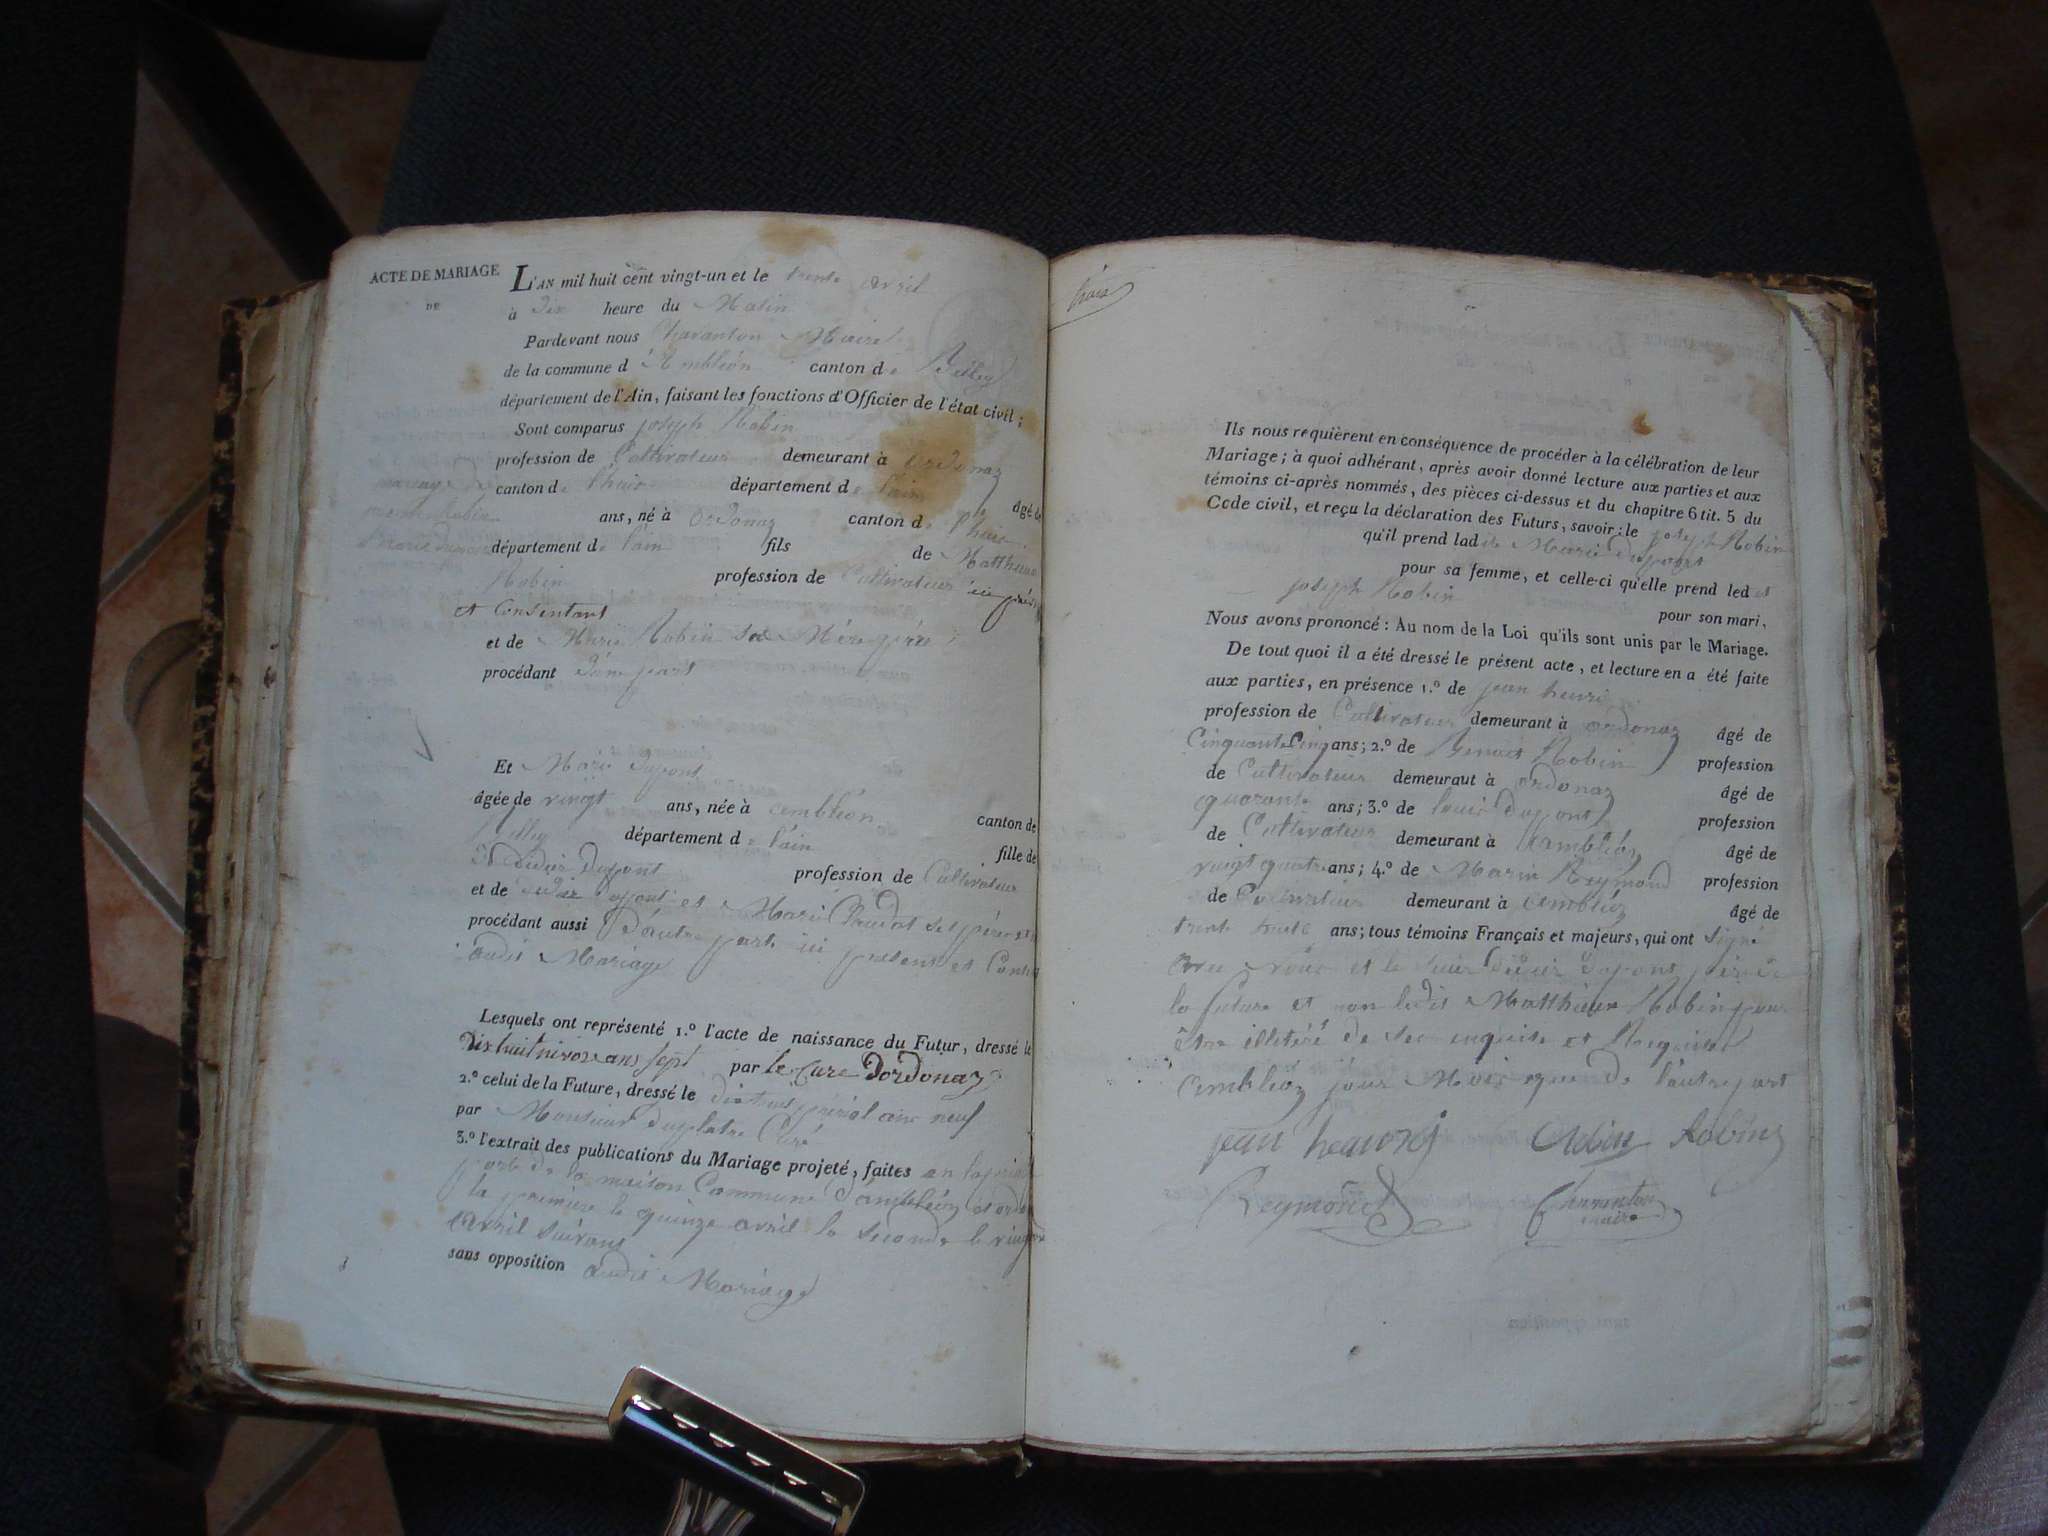 ACTE DE MARIAGE
DE
mariage de
Robin
Marie dupont
L'AN mil huit cent vingt-un et le trente avril
à Dix heure du Matin
Pardevant nous Charanton Maire
de la commune d'Ambléon canton de Belley
département de l'Ain, faisant les fonctions d'Officier de l'état civil;
Sont comparus joseph Robin
profession de Cultivateur demeurant à ordonaz
canton de l'huis département de l'ain âgé de
ans, né à ordonaz canton de l'huis
département de l'ain fils de Matthieu
Robin profession de Cultivateur ici
et Consentant
et de Marie Robin sa Mère
procédant d'une part
Et Marie Dupont
âgée de vingt ans, née à ambléon canton de
Belley département de l'ain fille de
Didier Dupont profession de Cultivateur
et de Didier Dupont et Marie
procédant aussi D'autre part ici présent et
audit Mariage
Lesquels ont représenté 1.º l'acte de naissance du Futur, dressé le
Dix huit nivose ans sept par le Curé Dordonaz
2.º celui de la Future, dressé le an neuf
par Monsieur duplatre Curé
3.º l'extrait des publications du Mariage projeté, faites
porte de la maison Commune d'ambléon
la première le quinze avril la seconde le
avril suivant
sans opposition audit Mariage
trois
Ils nous requièrent en conséquence de procéder à la célébration de leur
Mariage; à quoi adhérant, après avoir donné lecture aux parties et aux
témoins ci-après nommés, des pièces ci-dessus et du chapitre 6 tit. 5 du
Code civil, et reçu la déclaration des Futurs, savoir: le joseph Robin
qu'il prend ladite Marie dupont
pour sa femme, et celle-ci qu'elle prend ledit
joseph Robin pour son mari,
Nous avons prononcé: Au nom de la Loi qu'ils sont unis par le Mariage.
De tout quoi il a été dressé le présent acte, et lecture en a été faite
aux parties, en présence 1.º de jean henri
profession de Cultivateur demeurant à ordonaz âgé de
Cinquante Cinq ans; 2.º de Benoit Robin profession
de Cultivateur demeurant à ordonaz âgé de
quarante ans; 3.º de louis dupont profession
de Cultivateur demeurant à ambléon âgé de
vingt quatre ans; 4.º de Marin Reymond profession
de Cultivateur demeurant à ambléon âgé de
trente huit ans; tous témoins Français et majeurs, qui ont signé
avec nous et le sieur Didier dupont père de
la future et non ledit Matthieux Robin pour
être illétéré de ce enquis et Requis
ambléon jour Mois que de l'autre part
jean heanry Robin
Reymond Charanton
maire
sans opposition